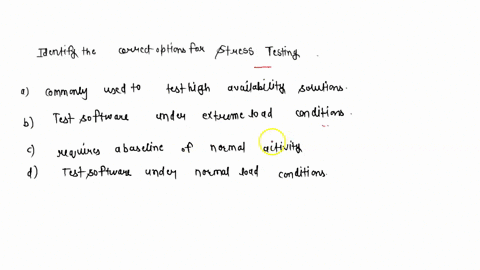 Identify the correct options for Stress Testing .
a) commonly used to test high availability solutions.
b) Test software under extreme load conditions .
c) requires a baseline of normal aitivity
d) Test software under normal load conditions.